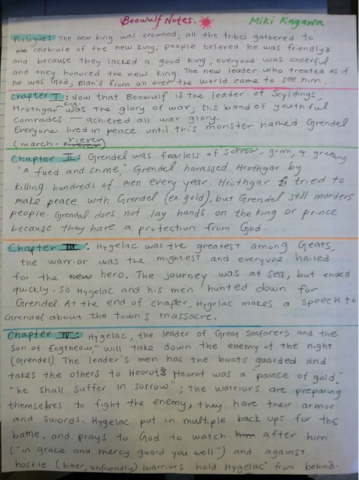 Beowulf Notes. Miki Kagawa
Prologue: The new king was crowned, all the tribes gathered to
celebrate of the new king; people believed he was friendly
and because they lacked a good king, everyone was cheerful
and they honored the new king. The new leader who treated as if
he was God, clan's from all over the world came to see him.
Chapter I: Now that Beowulf is the leader of Scyldings,
Hrothgar king was the glory of war, his band of youthful
comrades achieved all war glory.
Everyone lived in peace until this monster named Grendel
(march-riever
Chapter II: Grendel was fearless of sorrow, grim, & greedy
"a fued and crime," Grendel harassed Hrothgar by
killing hundreds of men every year. Hrothgar tried to
make peace with Grendel (ex gold), but Grendel still murders
people. Grendel does not lay hands on the king or prince
because they have a protection from God.
Chapter III: Hygelac was the greatest among Geats,
the warrior was the mightest and everyone hailed
for the hero. The journey was at sea, but ended
quickly. So Hygelac and his men hunted down for
Grendel. At the end of chapter, Hygelac makes a speech to
Grendel about the town's massacre.
Chapter IV: Hygelac, the leader of Great Seafarers and the
Son of Ecgtheow," will take down the enemy of the night
(Grendel). The leader's men has the boats guarded and
takes the others to Heorot; Heorot was a palace of gold.
"he shall suffer in sorrow"; the warriors are preparing
themselves to fight the enemy, they have their armor
and swords. Hygelac put in multiple back ups for the
battle, and prays to God to watch after him
("in grace and mercy guard you well") and against
hostile (bitter, unfriendly) warriors hold Hygelac from behind.